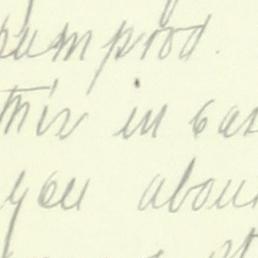 pump rod.
this in cas
you abou